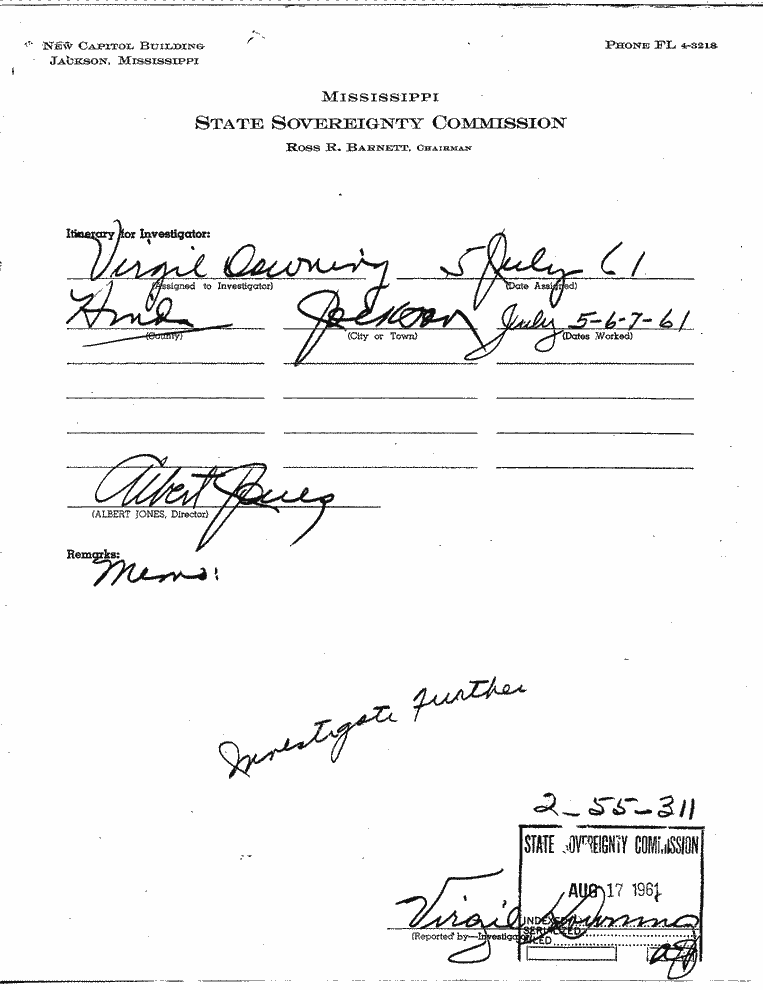 NEW CAPITOL BUILDING
JACKSON, MISSISSIPPI
PHONE FL 4-3218
MISSISSIPPI
STATE SOVEREIGNTY COMMISSION
ROSS R. BARNETT, CHAIRMAN
Itinerary for Investigator:
Virgil Downing 5 July 61
(Assigned to Investigator) (Date Assigned)
Hinds Jackson July 5-6-7-61
(County) (City or Town) (Dates Worked)
Albert Jones
(ALBERT JONES, Director)
Remarks:
Memo:
Investigate Further
2-55-311
STATE SOVEREIGNTY COMMISSION
AUG 17 1961
Virgil Downing
INDEXED
SERIALIZED
(Reported by—Investigator)
FILED